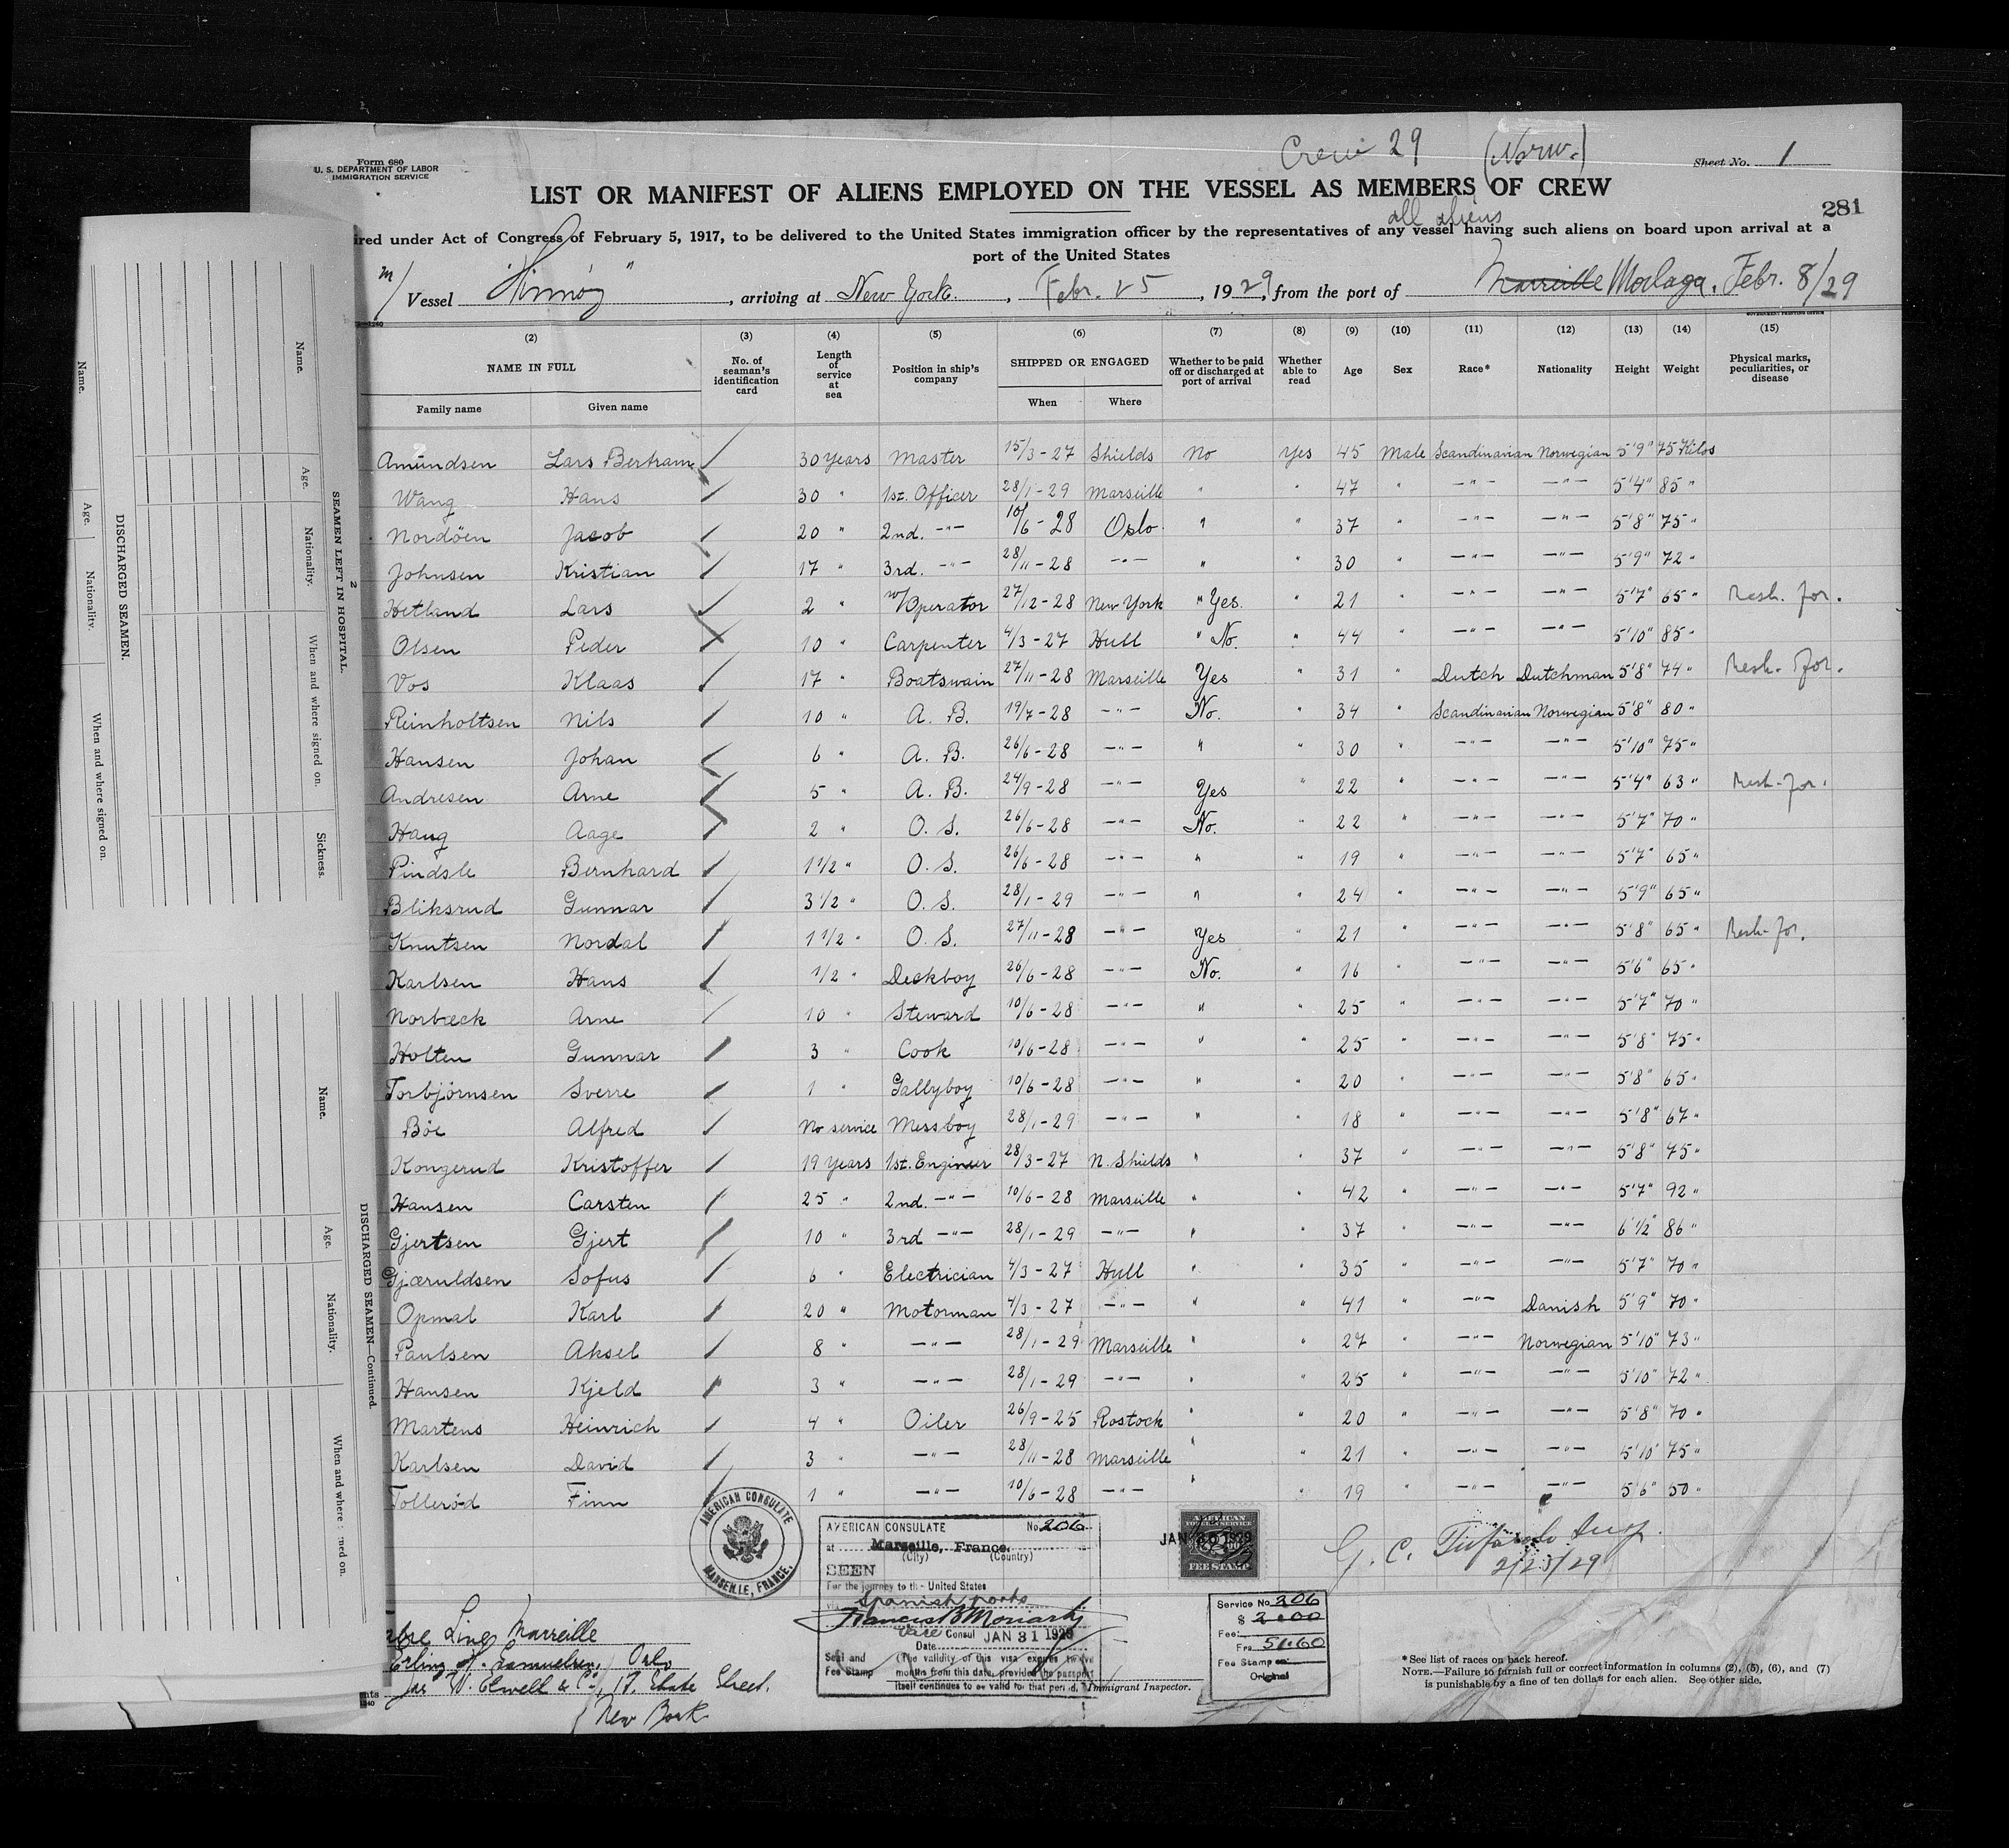 Form 680
U. S. DEPARTMENT OF LABOR
IMMIGRATION SERVICE
Crew 29 (Norw.)
Sheet No. 1
LIST OR MANIFEST OF ALIENS EMPLOYED ON THE VESSEL AS MEMBERS OF CREW
281
all aliens
ired under Act of Congress of February 5, 1917, to be delivered to the United States immigration officer by the representatives of any vessel having such aliens on board upon arrival at a
port of the United States
m/ Vessel "Hinnöy", arriving at New York., Febr. 25, 1929, from the port of Marseille Malaga. Febr. 8/29
(2) (3) (4) (5) (6) (7) (8) (9) (10) (11) (12) (13) (14) (15)
NAME IN FULL No. of seaman's identification card Length of service at sea Position in ship's company SHIPPED OR ENGAGED Whether to be paid off or discharged at port of arrival Whether able to read Age Sex Race* Nationality Height Weight Physical marks, peculiarities, or disease
Family name Given name When Where
Amundsen Lars Bertram 30 years Master 15/3-27 Shields No Yes 45 Male Scandinavian Norwegian 5'9" 75 Kilos
Wang Hans 30 " 1st. Officer 28/1-29 Marseille " " 47 " -"- -"- 5'4" 85 "
Nordöen Jacob 20 " 2nd. -"- 10/6-28 Oslo " " 37 " -"- -"- 5'8" 75 "
Johnsen Kristian 17 " 3rd. -"- 28/11-28 -"- " " 30 " -"- -"- 5'9" 72 "
Hetland Lars 2 " w/Operator 27/12-28 New York " Yes. " 21 " -"- -"- 5'7" 65 " Resh. for.
Olsen Peder 10 " Carpenter 4/3-27 Hull " No. " 44 " -"- -"- 5'10" 85 "
Vos Klaas 17 " Boatswain 27/11-28 Marseille Yes " 31 " Dutch Dutchman 5'8" 74 " Resh. for.
Reinholtsen Nils 10 " A. B. 19/7-28 -"- No. " 34 " Scandinavian Norwegian 5'8" 80 "
Hansen Johan 6 " A. B. 26/6-28 -"- " " 30 " -"- -"- 5'10" 75 "
Andresen Arne 5 " A. B. 24/9-28 -"- Yes " 22 " -"- -"- 5'4" 63 " Resh. for.
Haug Aage 2 " O. S. 26/6-28 -"- No. " 22 " -"- -"- 5'7" 70 "
Pindsle Bernhard 1 1/2 " O. S. 26/6-28 -"- " " 19 " -"- -"- 5'7" 65 "
Bliksrud Gunnar 3 1/2 " O. S. 28/1-29 -"- " " 24 " -"- -"- 5'9" 65 "
Knutsen Nordal 1 1/2 " O. S. 27/11-28 -"- Yes " 21 " -"- -"- 5'8" 65 " Resh. for.
Karlsen Hans 1/2 " Deckboy 26/6-28 -"- No. " 16 " -"- -"- 5'6" 65 "
Norbæck Arne 10 " Steward 10/6-28 -"- " " 25 " -"- -"- 5'7" 70 "
Holten Gunnar 3 " Cook 10/6-28 -"- " " 25 " -"- -"- 5'8" 75 "
Torbjörnsen Sverre 1 " Gallyboy 10/6-28 -"- " " 20 " -"- -"- 5'8" 65 "
Böe Alfred No service Messboy 28/1-29 -"- " " 18 " -"- -"- 5'8" 67 "
Kongerud Kristoffer 19 years 1st. Engineer 28/3-27 N. Shields " " 37 " -"- -"- 5'8" 75 "
Hansen Carsten 25 " 2nd. -"- 10/6-28 Marseille " " 42 " -"- -"- 5'7" 92 "
Gjertsen Gjert 10 " 3rd -"- 28/1-29 -"- " " 37 " -"- -"- 6'1/2" 86 "
Gjæruldsen Sofus 6 " Electrician 4/3-27 Hull " " 35 " -"- -"- 5'7" 70 "
Opmal Karl 20 " Motorman 4/3-27 -"- " " 41 " -"- Danish 5'9" 70 "
Paulsen Aksel 8 " -"- 28/1-29 Marseille " " 27 " -"- Norwegian 5'10" 73 "
Hansen Kjeld 3 " -"- 28/1-29 -"- " " 25 " -"- -"- 5'10" 72 "
Martens Heinrich 4 " Oiler 26/9-25 Rostock " " 20 " -"- -"- 5'8" 70 "
Karlsen David 3 " -"- 28/11-28 Marseille " " 21 " -"- -"- 5'10" 75 "
Tolleröd Finn 1 " -"- 10/6-28 -"- " " 19 " -"- -"- 5'6" 50 "
AMERICAN CONSULATE
MARSEILLE, FRANCE.
AMERICAN CONSULATE No. 206
at Marseille, France.
(City) (Country)
SEEN
For the journey to the United States
via Spanish ports
Francis B Moriarty
Vice Consul JAN 31 1929
Date
Seal and Fee Stamp
(The validity of this visa expires twelve
months from this date, provided the passport
itself continues to be valid for that period.)
Immigrant Inspector.
AMERICAN
FOREIGN SERVICE
JAN 30 1929
FEE STAMP
Service No. 206
$ 2.00
Fee:
Frs 51.60
Fee Stamp on
Original
G. C.
2/25/29
Line, Marseille
Erling H. Samuelsen, Oslo
Jas W. Elwell & Co., 17. State Street.
New York
*See list of races on back hereof.
NOTE.—Failure to furnish full or correct information in columns (2), (5), (6), and (7)
is punishable by a fine of ten dollars for each alien. See other side.
2
SEAMEN LEFT IN HOSPITAL.
Name. Age. Nationality. When and where signed on. Sickness.
DISCHARGED SEAMEN.
Name. Age. Nationality. When and where signed on.
DISCHARGED SEAMEN—Continued.
Name. Age. Nationality. When and where signed on.